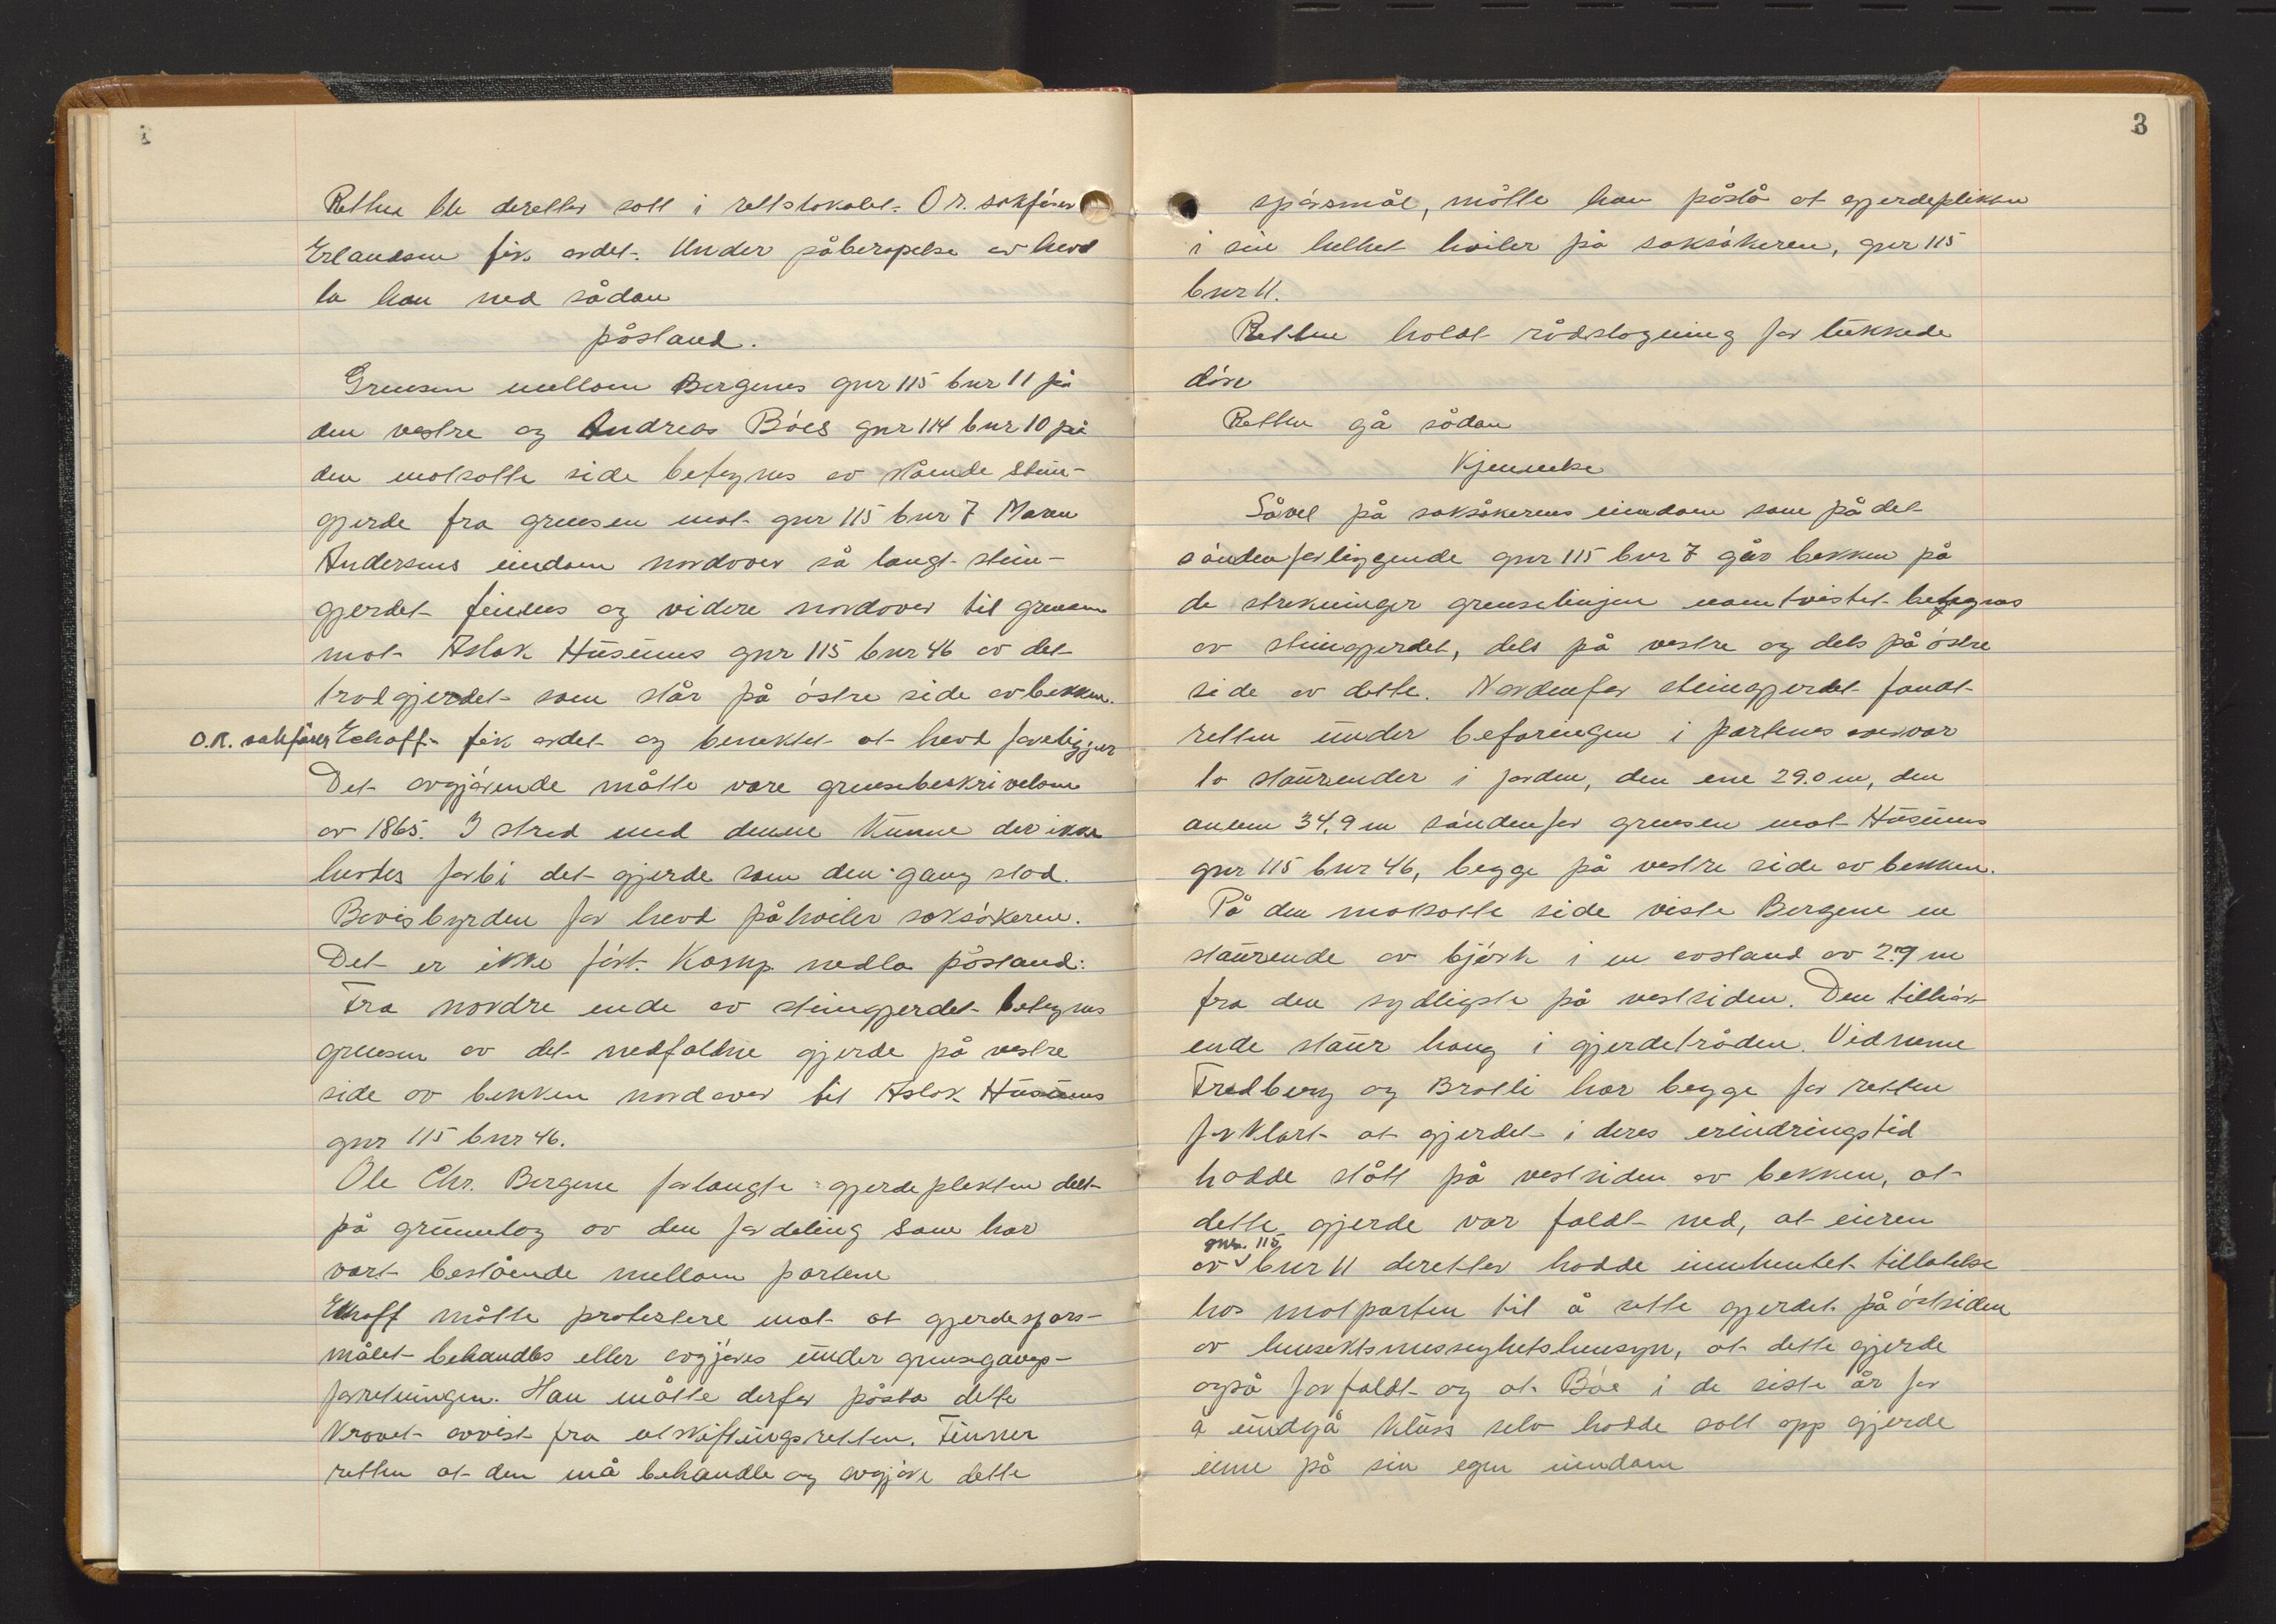 Retten ble deretter satt i rettslokalet. O.r. sakfører
Erlandsen fik ordet. Under påberopelse av hevd
la han ned sådan
påstand.
Grensen mellom Bergenes gnr 115 bnr 11 på
den vestre og Andreas Bøes gnr 114 bnr 10 på
den motsatte side betegnes av stående stein-
gjerde fra grensen mot gnr 115 bnr 7 Maren
Andersens eiendom nordover så langt stein-
gjerdet finnes og videre nordover til grensen
mot Aslak Husums gnr 115 bnr 46 av det
trådgjerdet som står på østre side av bekken.
O.R. sakfører Eckhoff fik ordet og benektet at hevd foreligger
Det avgjørende måtte være grensebeskrivelsen
av 1865. I strid med denne kunne der ikke
hevdes forbi det gjerde som den gang stod.
Bevisbyrden for hevd påhviler saksøkeren.
Det er ikke ført. Komp. nedla påstand:
Fra nordre ende av steingjerdet betegnes
grensen av det nedfaldne gjerde på vestre
side av bekken nordover til Aslak Husums
gnr 115 bnr 46.
Ole Chr. Bergene forlangte gjerdeplikten delt
på grunnlag av den fordeling som har
vært bestående mellom partene
Ekhoff måtte protestere mot at gjerdespørs-
målet behandles eller avgjøres under grensegangs-
forretningen. Han måtte derfor påstå dette
kravet avvist fra utskiftningsretten. Finner
retten at den må behandle og avgjøre dette
3
spørsmål, måtte han påstå at gjerdeplikten
i sin helhet hviler på saksøkeren, gnr 115
bnr 11.
Retten holdt rådslagning for lukkede
døre
Retten ga sådan
Kjennelse
Såvel på saksøkerens eiendom som på det
søndenforliggende gnr 115 bnr 7 går bekken på
de strekninger grenselinjen uomtvistet betegnes
av steingjerdet, dels på vestre og dels på østre
side av dette. Nordenfor steingjerdet fandt
retten under befaringen i partenes nærvær
to staurender i jorden, den ene 29.0 m, den
annen 34,9 m søndenfor grensen mot Husums
gnr 115 bnr 46, begge på vestre side av bekken.
På den motsatte side viste Bergene en
staurende av bjørk i en avstand av 2.9 m
fra den sydligste på vestsiden. Den tilhør-
ende staur hang i gjerdetråden. Vidnene
Fredberg og Bratli har begge for retten
forklart at gjerdet i deres erindringstid
hadde stått på vestsiden av bekken, at
dette gjerde var faldt ned, at eieren
gnr. 115
av bnr 11 deretter hadde innhentet tillatelse
hos motparten til å sette gjerdet på østsiden
av hensiktsmessighetshensyn, at dette gjerde
også forfaldt og at Bøe i de siste år for
å undgå kluss selv hadde satt opp gjerde
inne på sin egen eiendom